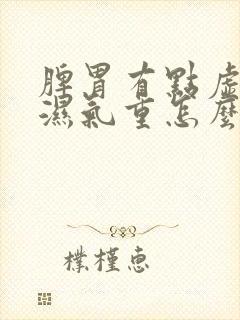 脾胃有點虛
濕氣重怎麼
樸槿惠